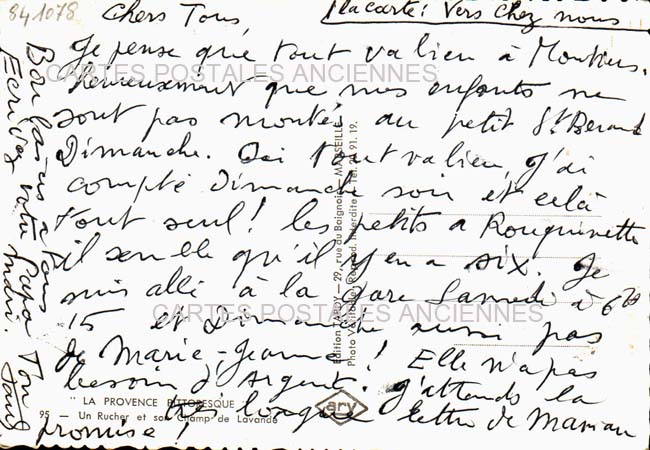 841078
chers Tous
la carte: vers chez nous
Je pense que tout va bien à Moutiers.
Heureusement que mes enfants ne
sont pas montés au petit St Bernard
Dimanche. Ici tout va bien, j'ai
compté Dimanche soir et cela
tout seul! les petits à Rouquinette
il semble qu'il y en a six. Je
suis allé à la gare Samedi à 6h
15 et Dimanche aussi pas
de Marie-Jeanne! Elle n'a pas
besoin d'argent. J'attends la
très longue lettre de Maman
promise!
Bons baisers à tous
Ecrivez votre Papa Ton
mari.
CARTES POSTALES ANCIENNES
CARTES POSTALES ANCIENNES
Edition TARDY — 29, rue du Baignoir — MARSEILLE
Photo Véritable - Reprod. Interdite - Tél. 20.91.19.
" LA PROVENCE PITTORESQUE "
95 — Un Rucher et son Champ de Lavande
ary